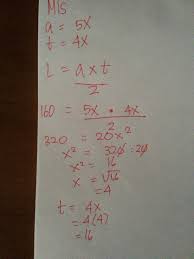 MIS
a = 5x
t = 4x
L = a x t
2
160 = 5x · 4x
2
320 = 20x²
x² = 320 : 20
x² = 16
x = √16
= 4
t = 4x
= 4(4)
= 16